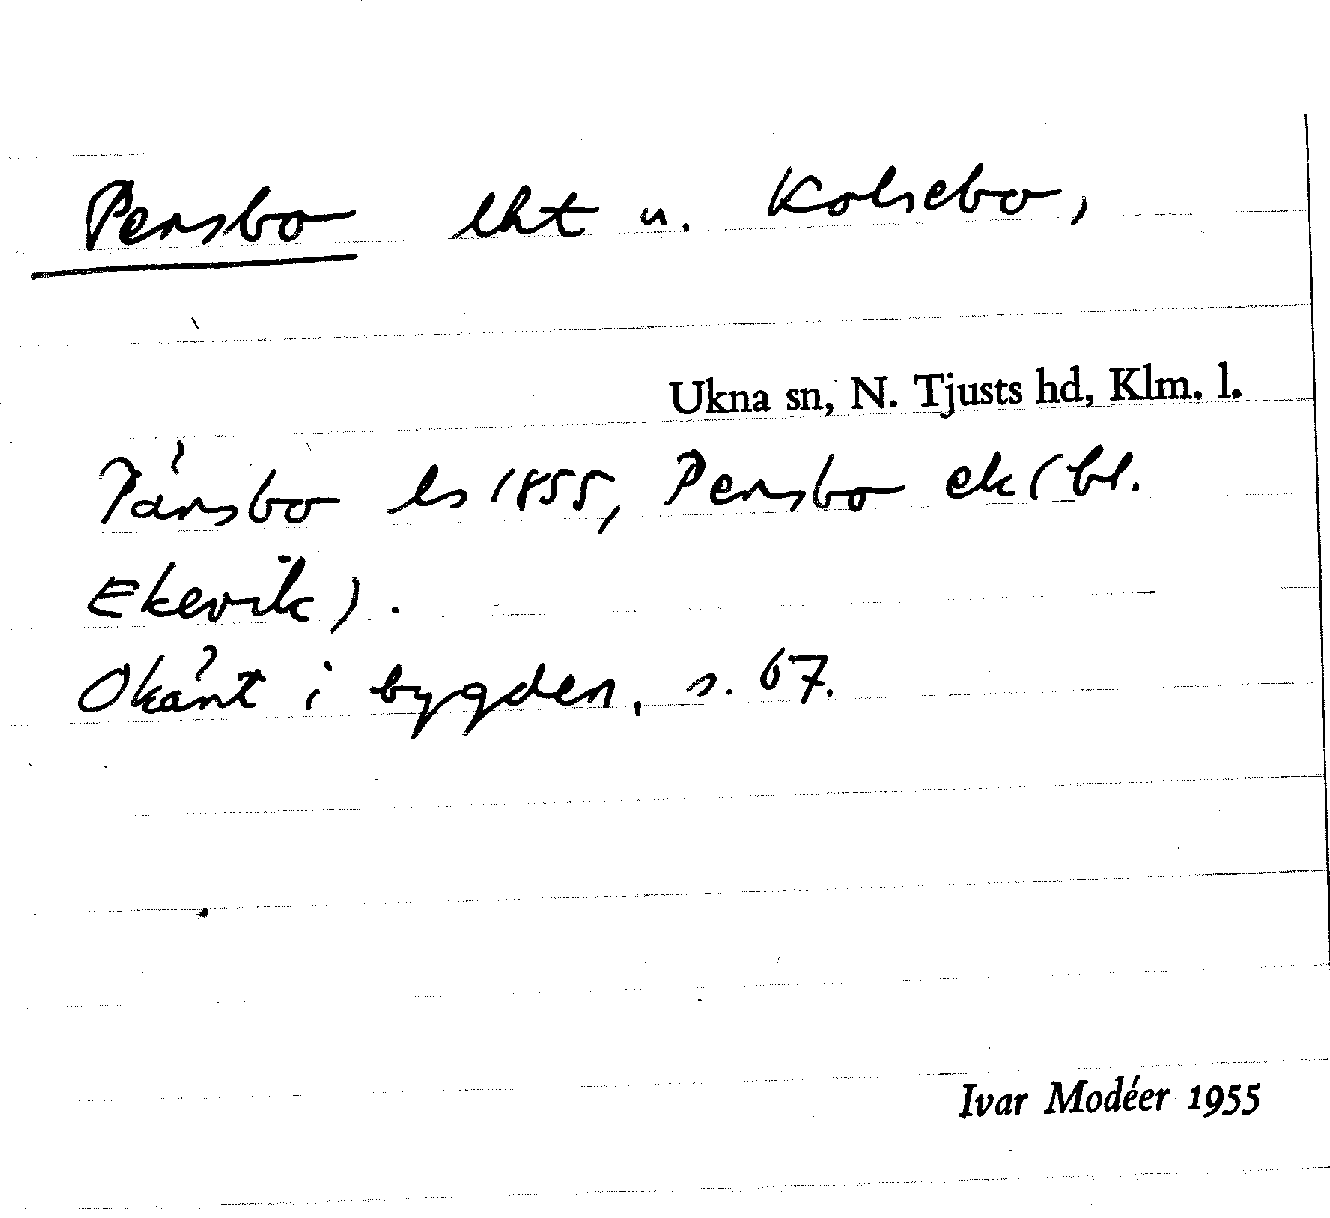 Pensbo lht u. Kolsebo,
Ukna sn, N. Tjusts hd, Klm. l.
Pänsbo ls 1855, Pensbo ek (bl.
Ekevik).
Okänt i bygden, s. 67.
Ivar Modéer 1955